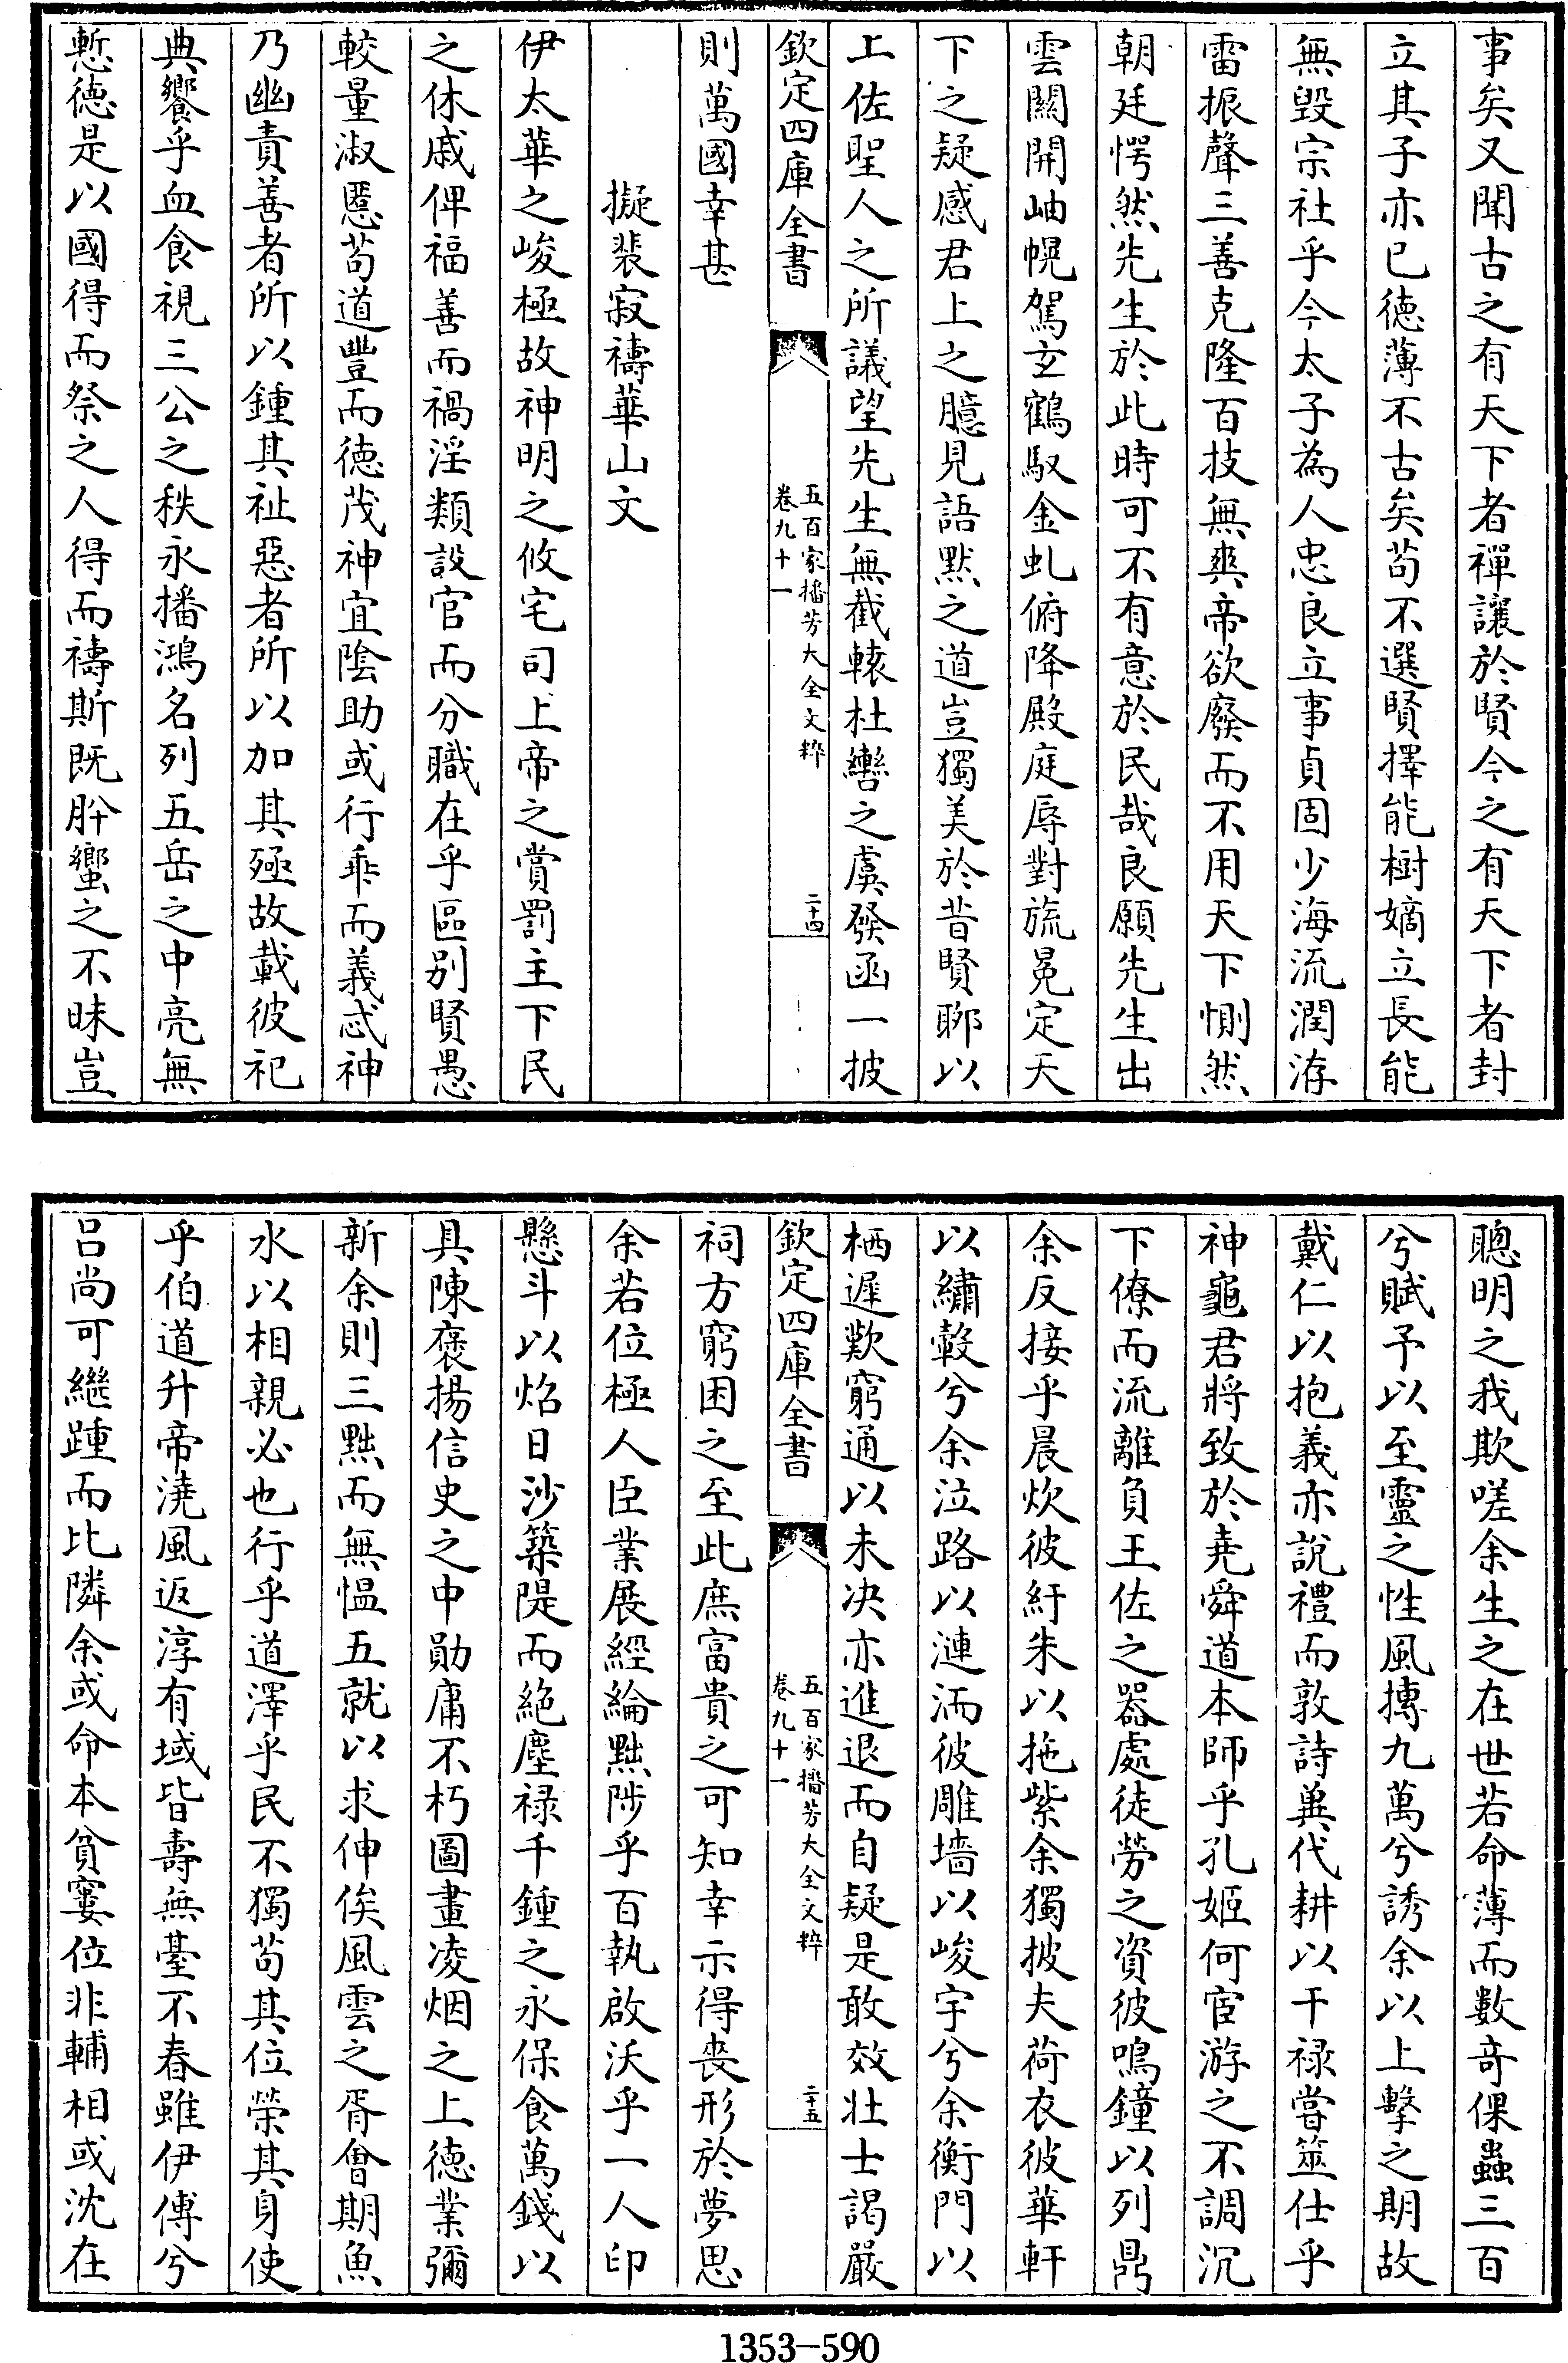 事矣又聞古之有天下者禪讓於賢今之有天下者封
立其子亦已德薄不古矣苟不選賢擇能樹嫡立長能
無毀宗社乎今太子為人忠良立事貞固少海流潤洊
雷振聲三善克隆百技無爽帝欲廢而不用天下惻然
朝廷愕然先生於此時可不有意於民哉良願先生出
雲關開岫幌駕玄鶴馭金虬俯降殿庭辱對旒冕定天
下之疑感君上之臆見語默之道豈獨美於昔賢聊以
上佐聖人之所議望先生無截轅杜轡之虞發函一披
欽定四庫全書
五百家播芳大全文粹
卷九十一
二十四
則萬國幸甚
擬裴寂禱華山文
伊太華之峻極故神明之攸宅司上帝之賞罰主下民
之休戚俾福善而禍淫類設官而分職在乎區別賢愚
較量淑慝苟道豐而德茂神宜陰助或行乖而義忒神
乃幽責善者所以鍾其祉惡者所以加其殛故載彼祀
典饗乎血食視三公之秩永播鴻名列五岳之中亮無
慙德是以國得而祭之人得而禱斯既肸蠁之不昧豈
聰明之我欺嗟余生之在世若命薄而數奇倮蟲三百
兮賦予以至靈之性風摶九萬兮誘余以上擊之期故
戴仁以抱義亦說禮而敦詩兾代耕以干禄嘗筮仕乎
神龜君將致於堯舜道本師乎孔姬何宦游之不調沉
下僚而流離負王佐之器處徒勞之資彼鳴鐘以列鼎
余反接乎晨炊彼紆朱以拖紫余獨披夫荷衣彼華軒
以繡轂兮余泣路以漣洏彼雕墻以峻宇兮余衡門以
栖遲歎窮通以未決亦進退而自疑是敢效壯士謁嚴
欽定四庫全書
五百家播芳大全文粹
卷九十一
二十五
祠方窮困之至此庶富貴之可知幸示得喪形於夢思
余若位極人臣業展經綸黜陟乎百執啟沃乎一人印
懸斗以焰日沙築隄而絕塵禄千鍾之永保食萬錢以
具陳褒揚信史之中勛庸不朽圖畫凌烟之上德業彌
新余則三黜而無愠五就以求伸俟風雲之胥會期魚
水以相親必也行乎道澤乎民不獨苟其位榮其身使
乎伯道升帝澆風返淳有域皆壽無臺不春雖伊傅兮
呂尚可繼踵而比隣余或命本貧窶位非輔相或沈在
1353-590